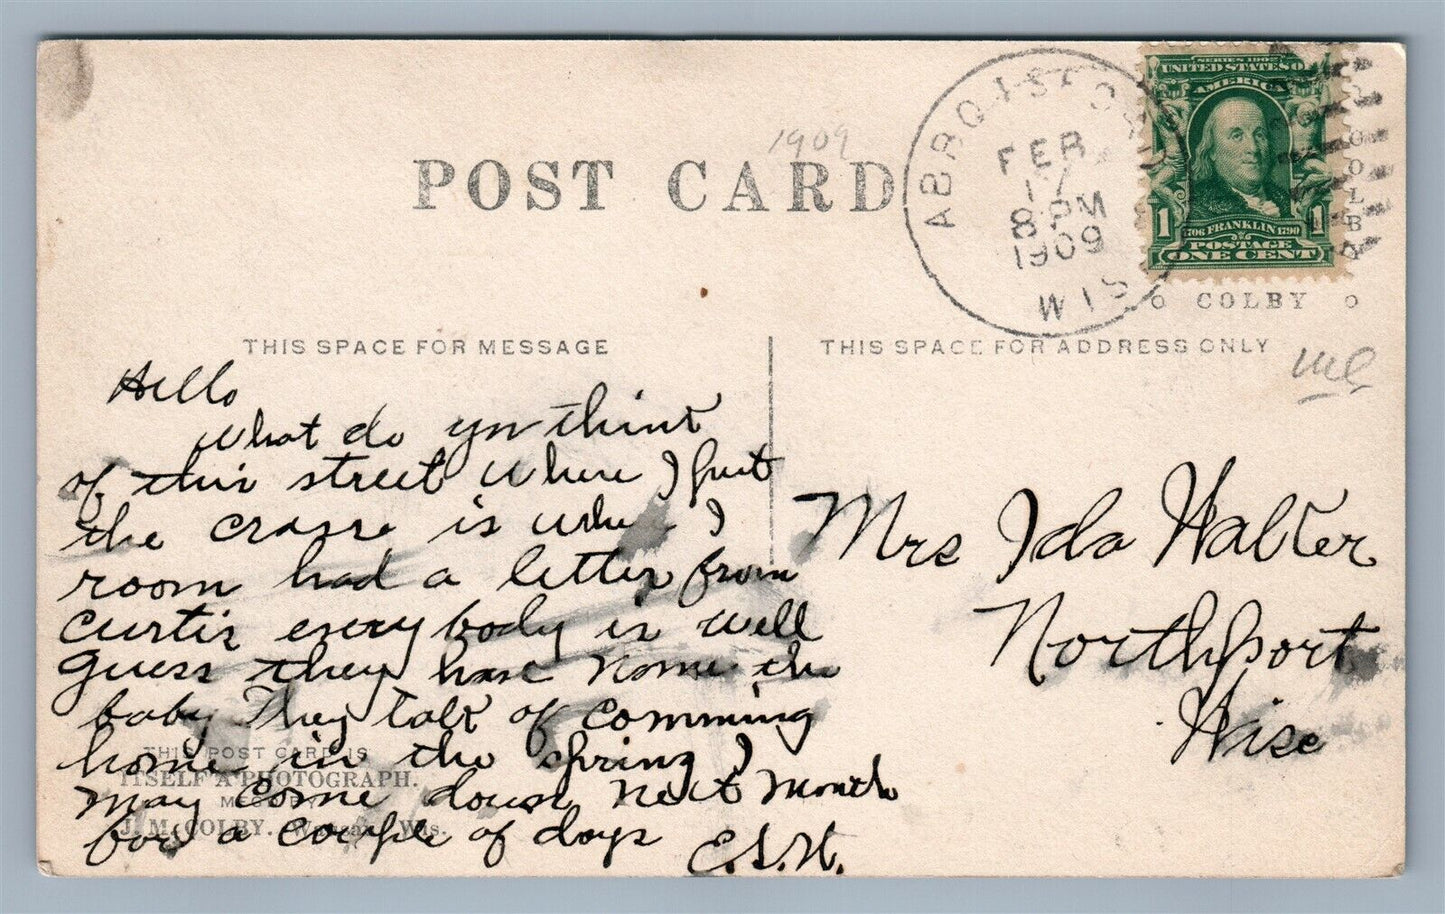 1909
POST CARD
ABBOTSFORD
FEB
17
8 PM
1909
WIS
SERIES 1902
UNITED STATES OF
AMERICA
1 1
1706 FRANKLIN 1790
POSTAGE
ONE CENT
COLBY
o COLBY o
THIS SPACE FOR MESSAGE
THIS SPACE FOR ADDRESS ONLY
Hello
What do you think
of this street where I put
the crass is where I
room had a letter from
Curtis every body is well
guess they have name the
baby They talk of comming
home in the spring I
may come down next month
for a couple of days
E.S.W.
Mrs Ida Walter
Northport
Wise
THIS POST CARD IS
ITSELF A PHOTOGRAPH.
J. M. COLBY. Wausau, Wis.